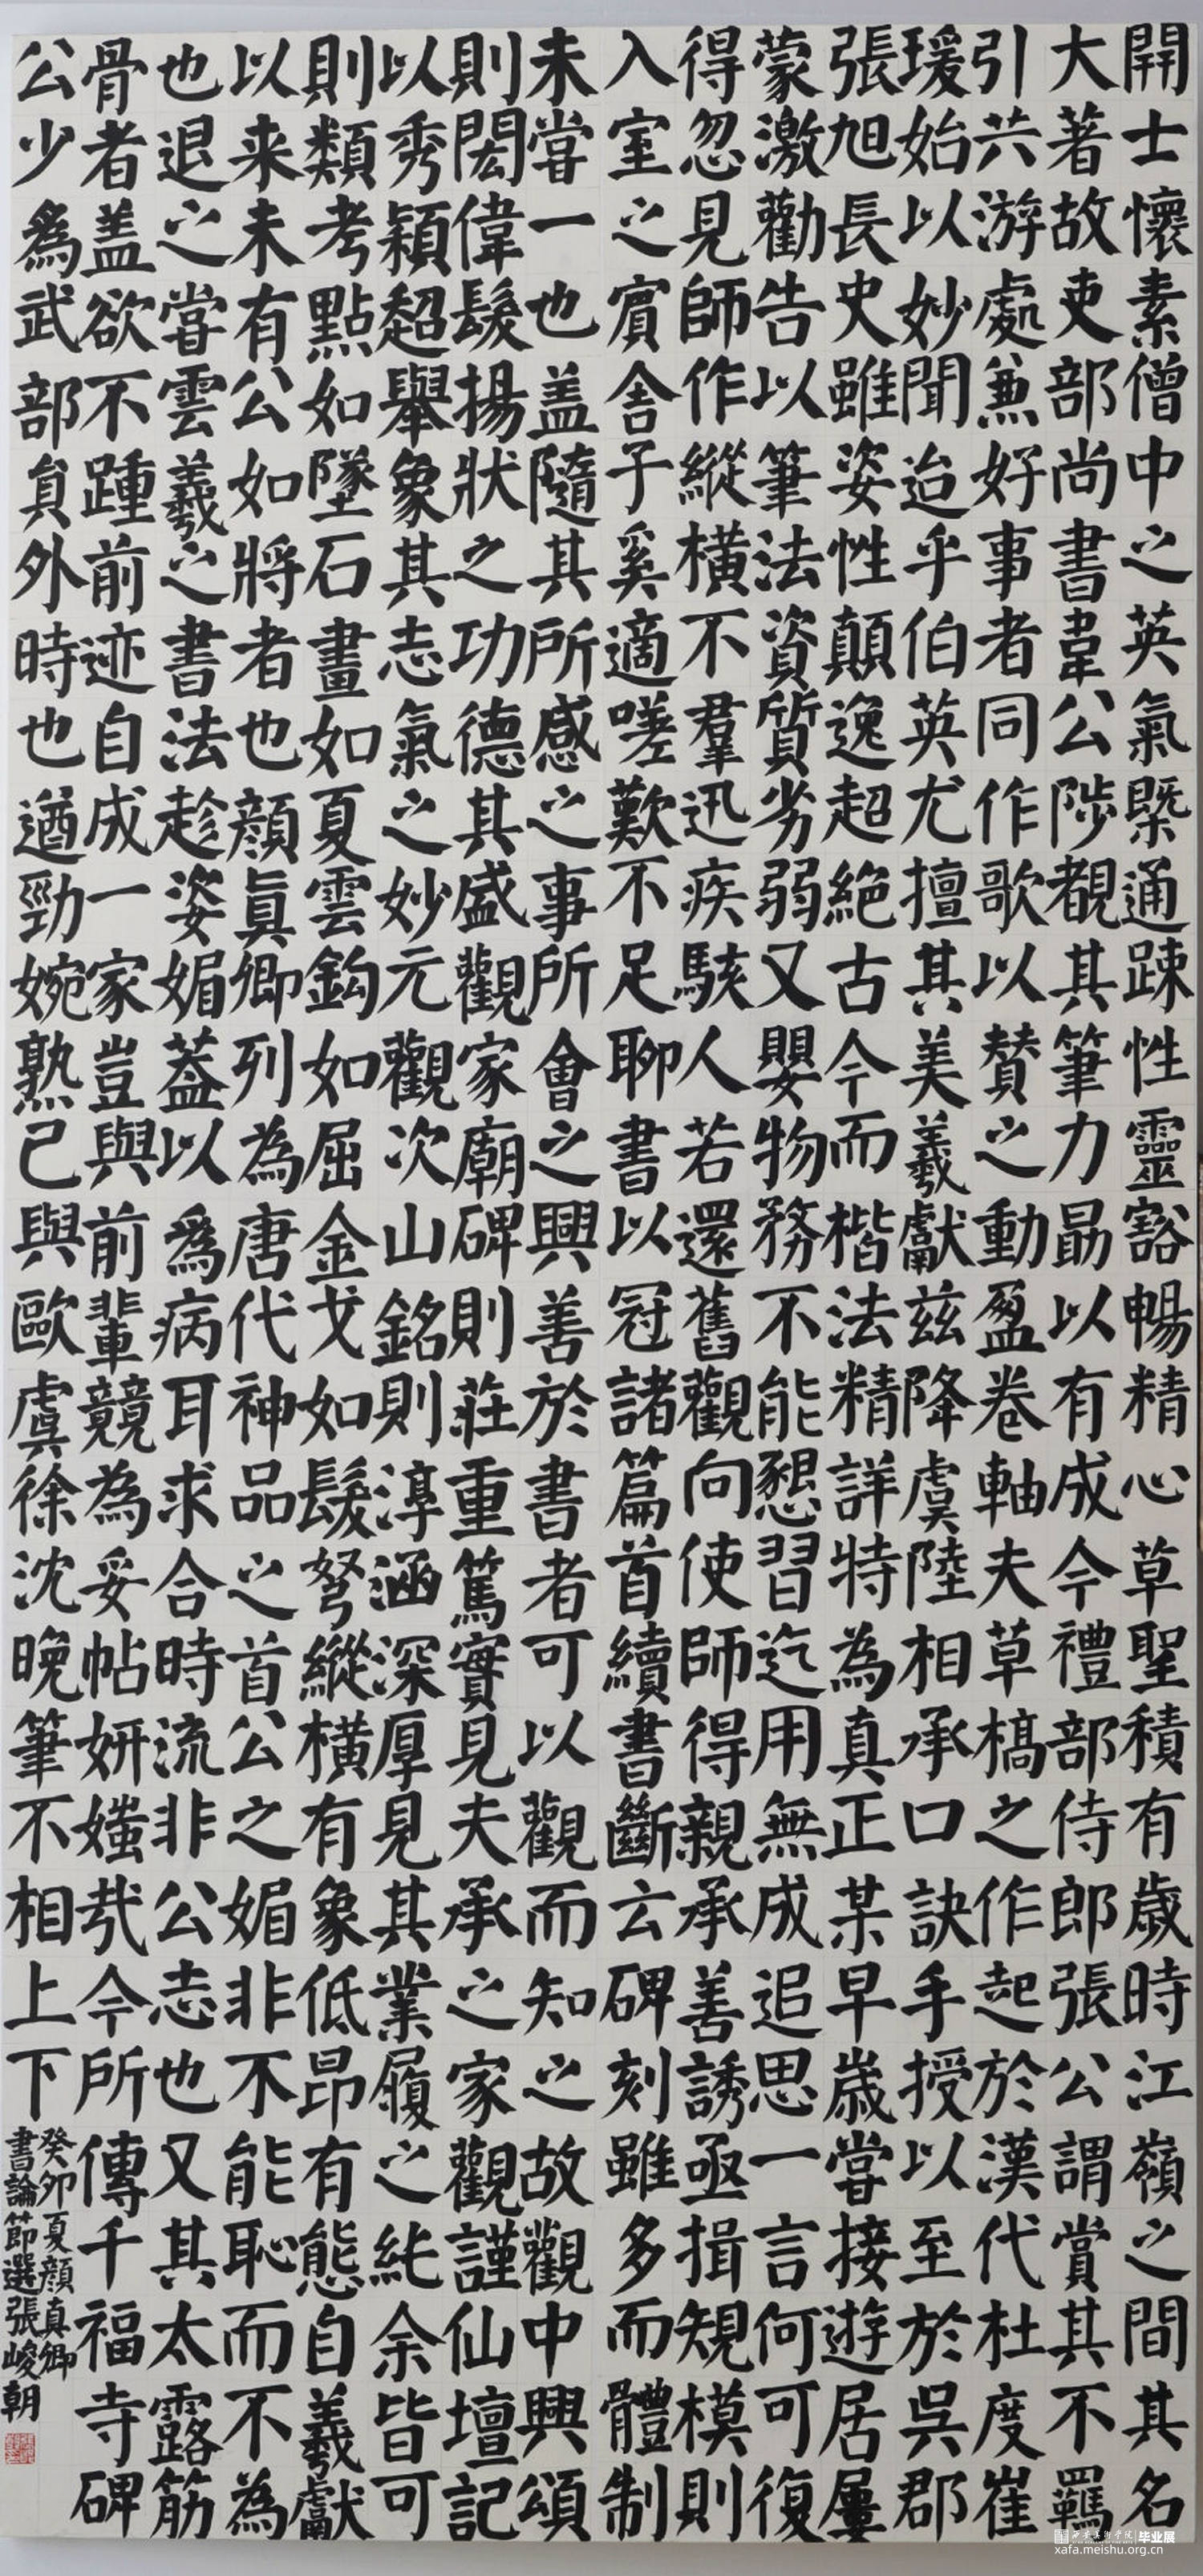 開士懷素僧中之英氣槩通踈性靈豁暢精心草聖積有歲時江嶺之間其名
大著故吏部尚書韋公陟覩其筆力勗以有成今禮部侍郎張公謂賞其不羈
引共游處兼好事者同作歌以賛之動盈卷軸夫草槁之作起於漢代杜度崔
瑗始以妙聞迨乎伯英尤擅其美羲獻兹降虞陸相承口訣手授以至於吳郡
張旭長史雖姿性顛逸超絕古今而楷法精詳特為真正某早歲嘗接遊居屢
蒙激勸告以筆法資質劣弱又嬰物務不能懇習迄用無成追思一言何可復
得忽見師作縱橫不羣迅疾駭人若還舊觀向使師得親承善誘亟揖規模則
入室之賓舍子奚適嗟歎不足聊書以冠諸篇首續書斷云碑刻雖多而體制
未嘗一也盖隨其所感之事所會之興善於書者可以觀而知之故觀中興頌
則閎偉髮揚狀之功德其盛觀家廟碑則莊重篤實見夫承之家觀謹仙壇記
以秀穎超舉象其志氣之妙元觀次山銘則淳涵深厚見其業履之純余皆可
則類考點如墜石畫如夏雲鈎如屈金戈如髮弩縱橫有象低昂有態自羲獻
以来未有公如將者也顔真卿列為唐代神品之首公之媚非不能恥而不為
也退之嘗雲羲之書法趁姿媚葢以爲病耳求合時流非公志也又其太露筋
骨者盖欲不踵前迹自成一家豈與前輩競為妥帖妍媸㢤今所傳千福寺碑
公少爲武部員外時也遒勁婉熟已與歐虞徐沈晚筆不相上下
癸卯夏顔真卿
書論節選張峻朝
西安美术学院 毕业展
xafa.meishu.org.cn